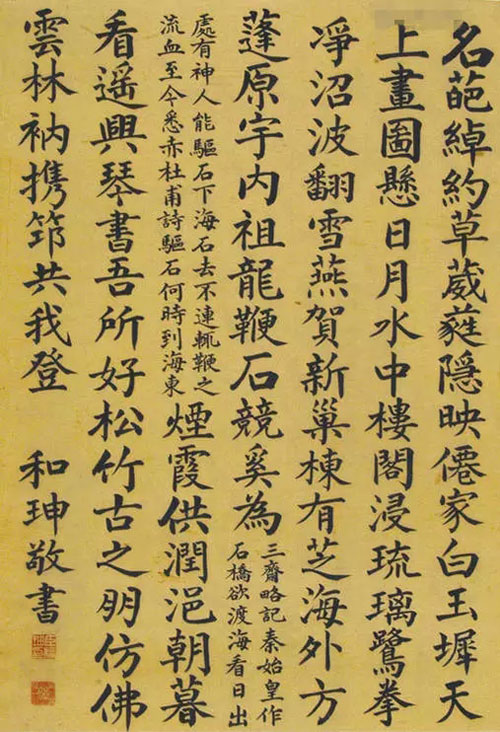 名葩綽約草葳蕤隱映僊家白玉墀天
上畫圖懸日月水中樓閣浸琉璃鷺拳
凈沼波翻雪燕賀新巢棟有芝海外方
蓬原宇内祖龍鞭石競奚為
三齋略記秦始皇作
石橋欲渡海看日出
處有神人能驅石下海石去不連輒鞭之
流血至今悉赤杜甫詩驅石何時到海東
煙霞供潤浥朝暮
看遥興琴書吾所好松竹古之朋仿佛
雲林衲携笻共我登 和珅敬書